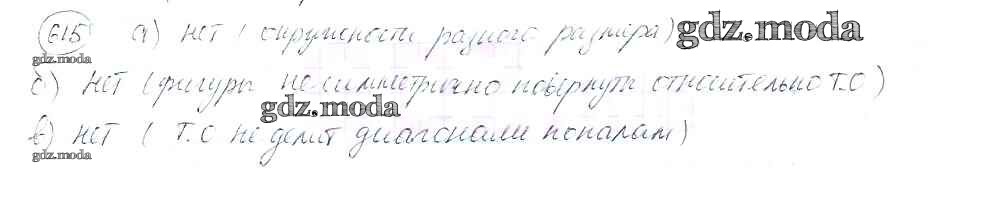 615 а) нет ( окружности разного размера) gdz.moda
gdz.moda
б) нет (фигуры не симметрично повернуты относительно т.О)
gdz.moda
в) нет ( т.О не делит диагонали пополам) gdz.moda
gdz.moda